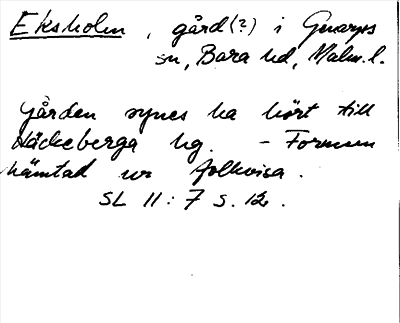 Eksholm, gård(?) i Genarps
sn, Bara hd, Malm. l.
Gården synes ha hört till
Häckeberga hg. - Formen
hämtad ur folkvisa.
SL 11:7 s. 12.